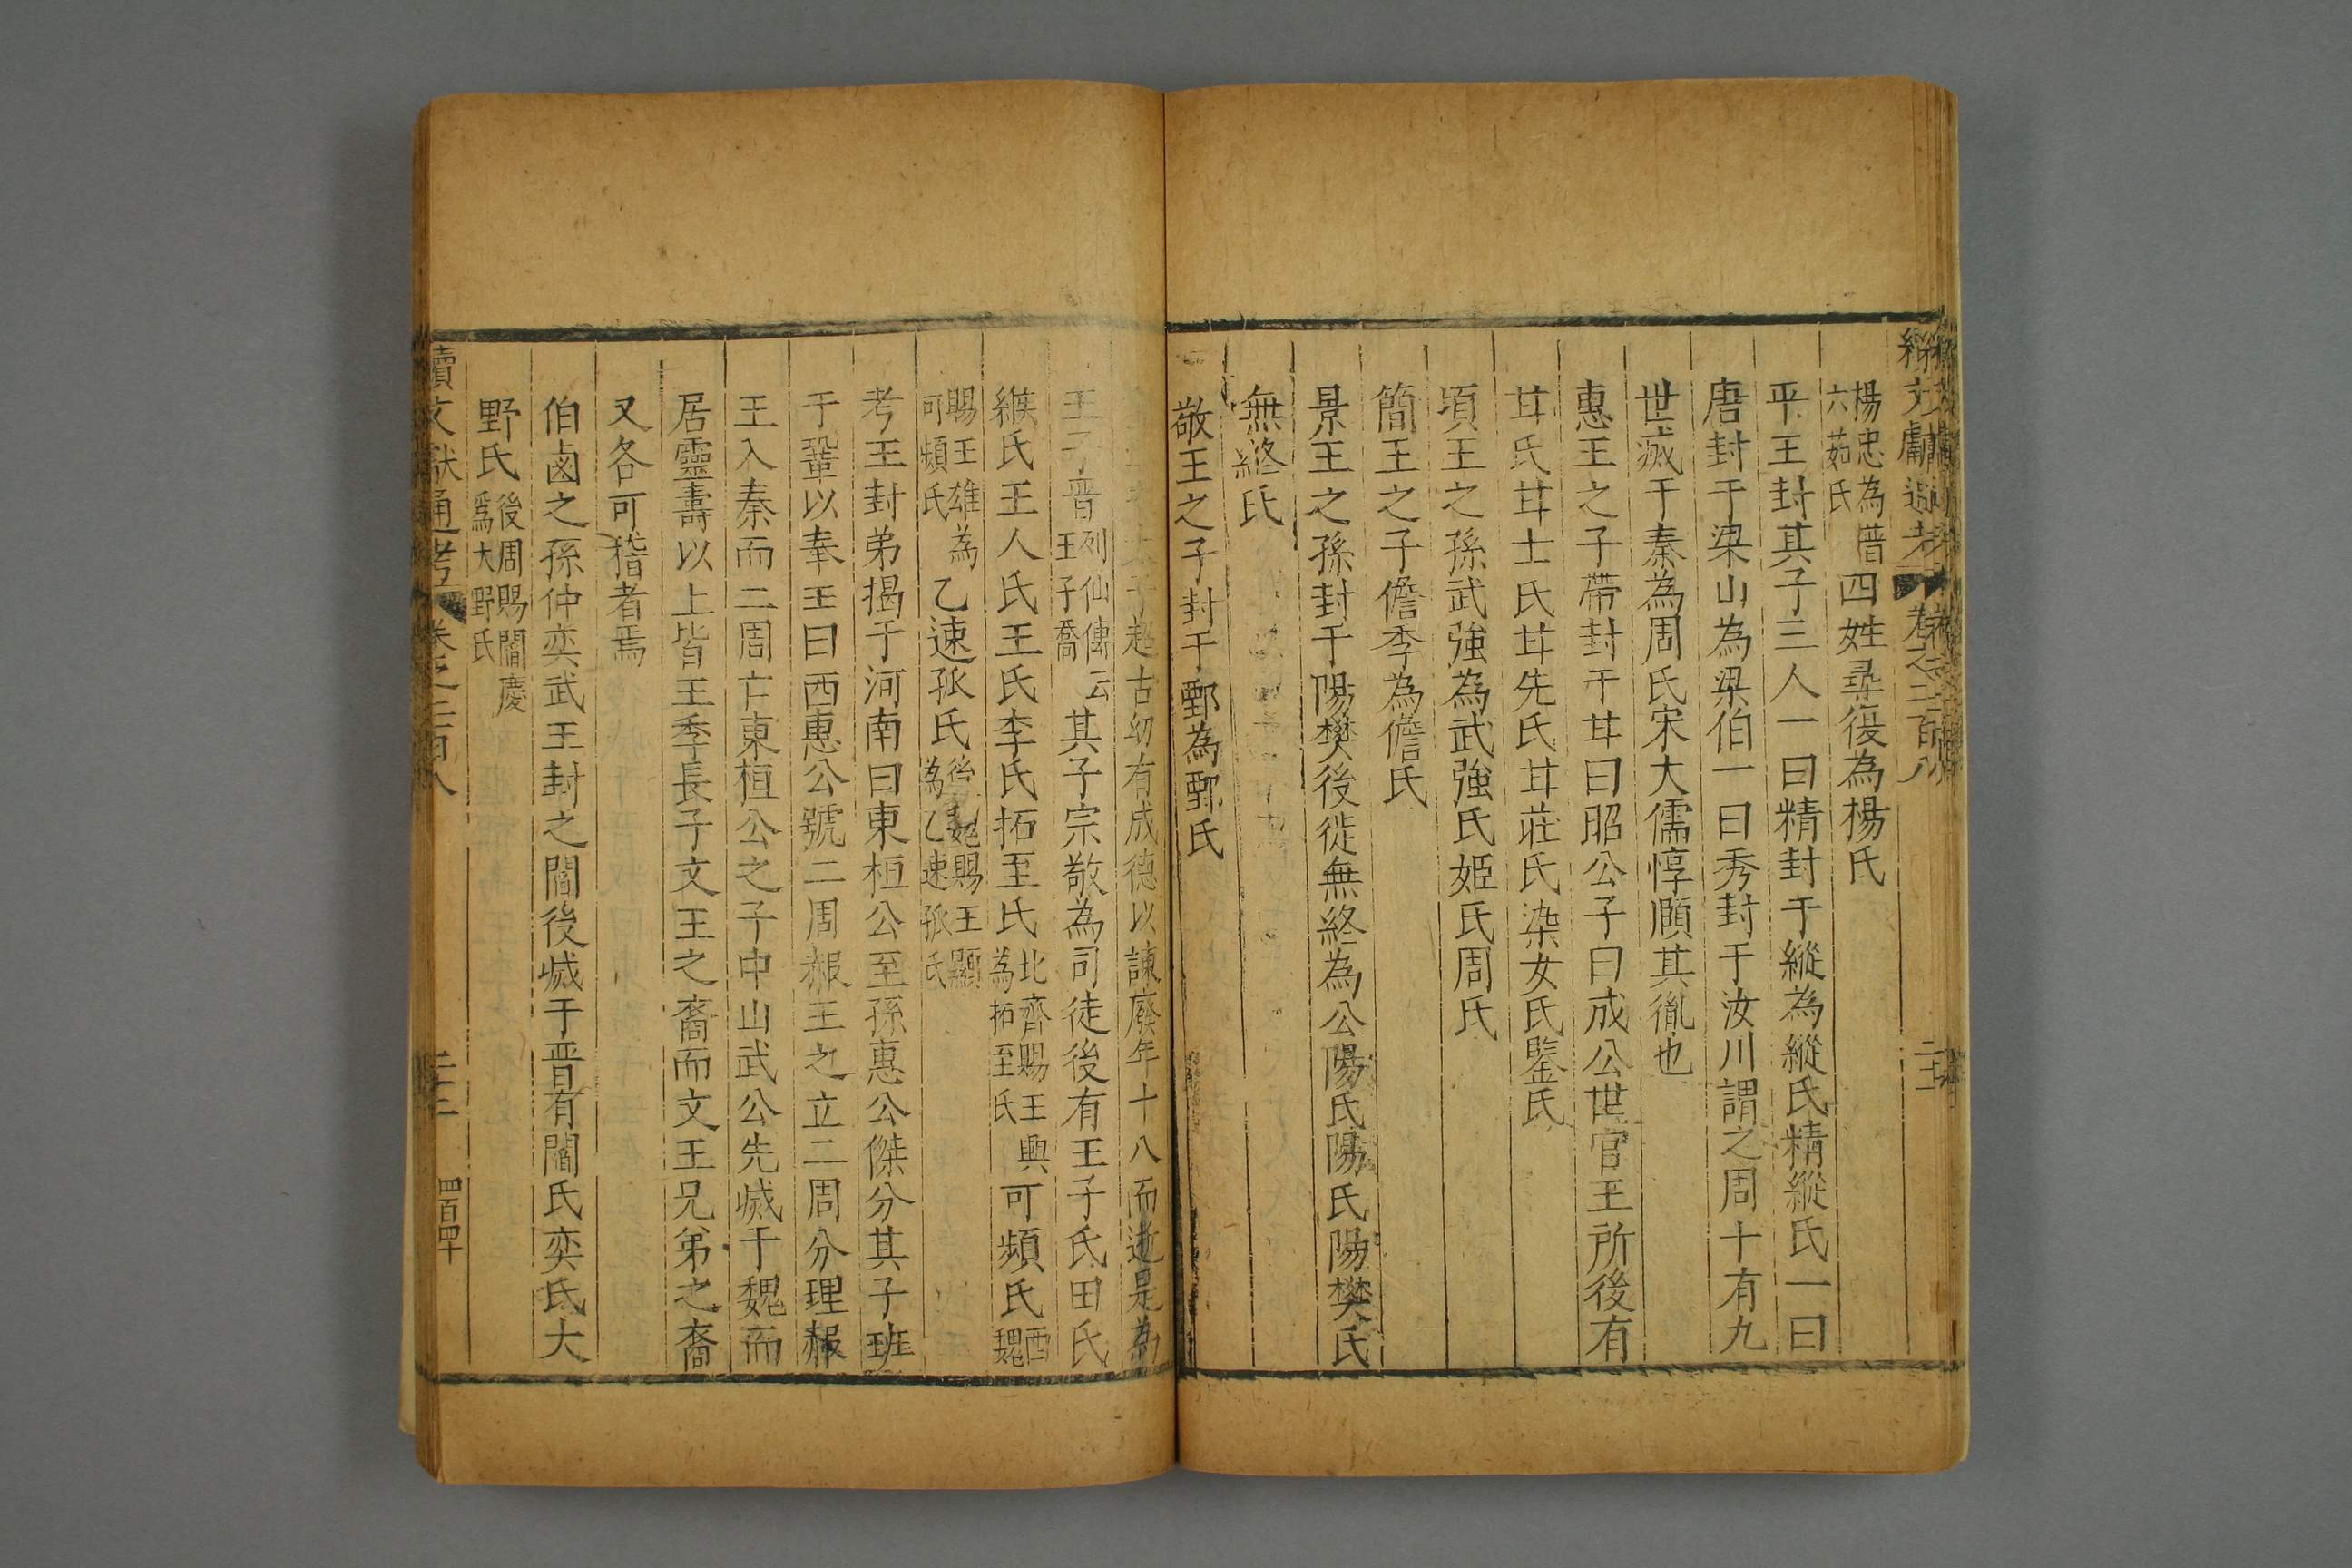 續文獻通考 卷之二百八
楊忠為普
六茹氏
四姓尋復為楊氏
平王封其子三人一曰精封于縱為縱氏精縱氏一曰
唐封于梁山為梁伯一曰秀封于汝川謂之周十有九
世滅于秦為周氏宋大儒惇頤其胤也
惠王之子帶封于甘曰昭公子曰成公世官王所後有
甘氏甘士氏甘先氏甘莊氏染女氏鑒氏
頃王之孫武強為武強氏姬氏周氏
簡王之子儋季為儋氏
景王之孫封于陽樊後徙無終為公陽氏陽氏陽樊氏
無終氏
敬王之子封于鄄為鄄氏
子超古幼有成德以諫廢年十八而逝是為
王子晋
列仙傳云
王子喬
其子宗敬為司徒後有王子氏田氏
緱氏王人氏王氏李氏拓至氏
北齊賜王興
為拓至氏
可頻氏
西
魏
賜王雄為
可頻氏
乙速孤氏
後魏賜王顯
為乙速孤氏
考王封弟揭于河南曰東桓公至孫惠公傑分其子班
于鞏以奉王曰西惠公號二周赧王之立二周分理赧
王入秦而二周亡東桓公之子中山武公先滅于魏而
居靈壽以上皆王季長子文王之裔而文王兄弟之裔
又各可稽者焉
伯鹵之孫仲奕武王封之閻後滅于晋有閻氏奕氏大
野氏
後周賜閻慶
為大野氏
續文獻通考 卷之二百八 二十二 四百四十